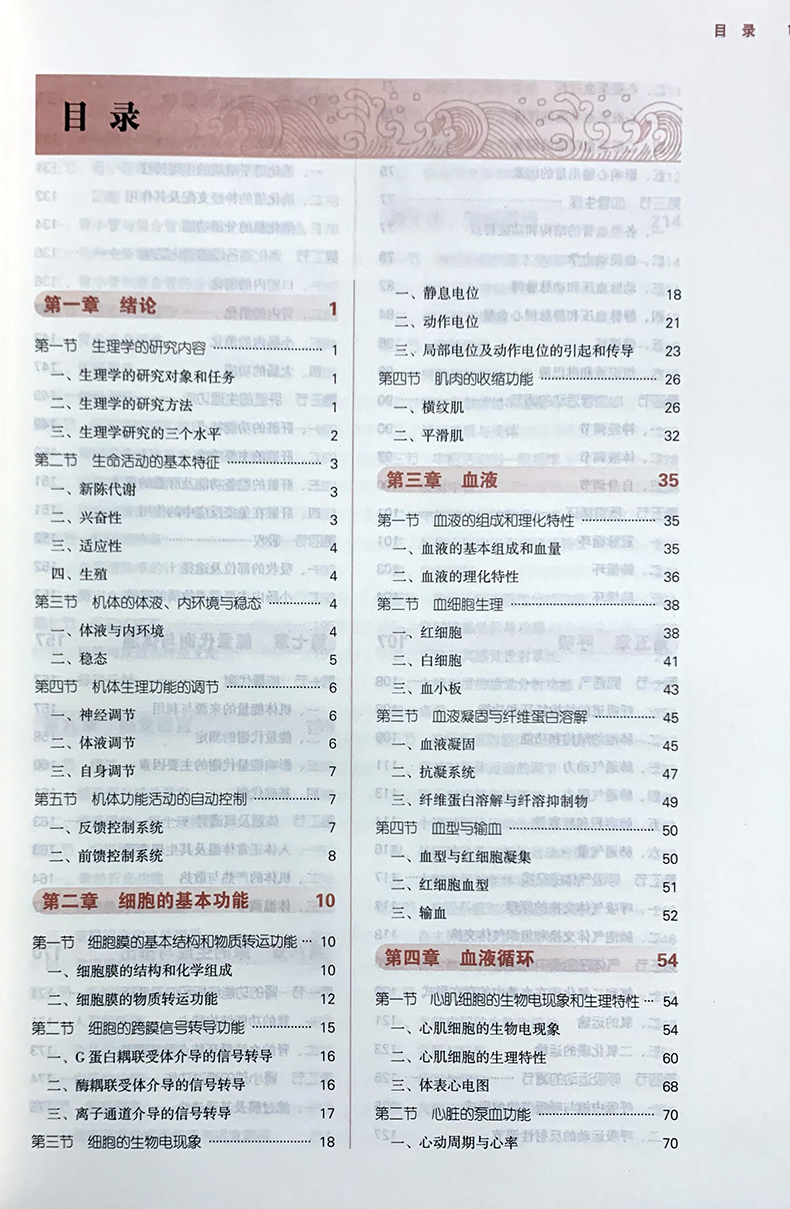 目 录
目 录
第一章 绪论 1
第一节 生理学的研究内容 1
一、生理学的研究对象和任务 1
二、生理学的研究方法 1
三、生理学研究的三个水平 2
第二节 生命活动的基本特征 3
一、新陈代谢 3
二、兴奋性 3
三、适应性 4
四、生殖 4
第三节 机体的体液、内环境与稳态 4
一、体液与内环境 4
二、稳态 5
第四节 机体生理功能的调节 6
一、神经调节 6
二、体液调节 6
三、自身调节 7
第五节 机体功能活动的自动控制 7
一、反馈控制系统 7
二、前馈控制系统 8
第二章 细胞的基本功能 10
第一节 细胞膜的基本结构和物质转运功能 10
一、细胞膜的结构和化学组成 10
二、细胞膜的物质转运功能 12
第二节 细胞的跨膜信号转导功能 15
一、G 蛋白耦联受体介导的信号转导 16
二、酶耦联受体介导的信号转导 16
三、离子通道介导的信号转导 17
第三节 细胞的生物电现象 18
一、静息电位 18
二、动作电位 21
三、局部电位及动作电位的引起和传导 23
第四节 肌肉的收缩功能 26
一、横纹肌 26
二、平滑肌 32
第三章 血液 35
第一节 血液的组成和理化特性 35
一、血液的基本组成和血量 35
二、血液的理化特性 36
第二节 血细胞生理 38
一、红细胞 38
二、白细胞 41
三、血小板 43
第三节 血液凝固与纤维蛋白溶解 45
一、血液凝固 45
二、抗凝系统 47
三、纤维蛋白溶解与纤溶抑制物 49
第四节 血型与输血 50
一、血型与红细胞凝集 50
二、红细胞血型 51
三、输血 52
第四章 血液循环 54
第一节 心肌细胞的生物电现象和生理特性 54
一、心肌细胞的生物电现象 54
二、心肌细胞的生理特性 60
三、体表心电图 68
第二节 心脏的泵血功能 70
一、心动周期与心率 70